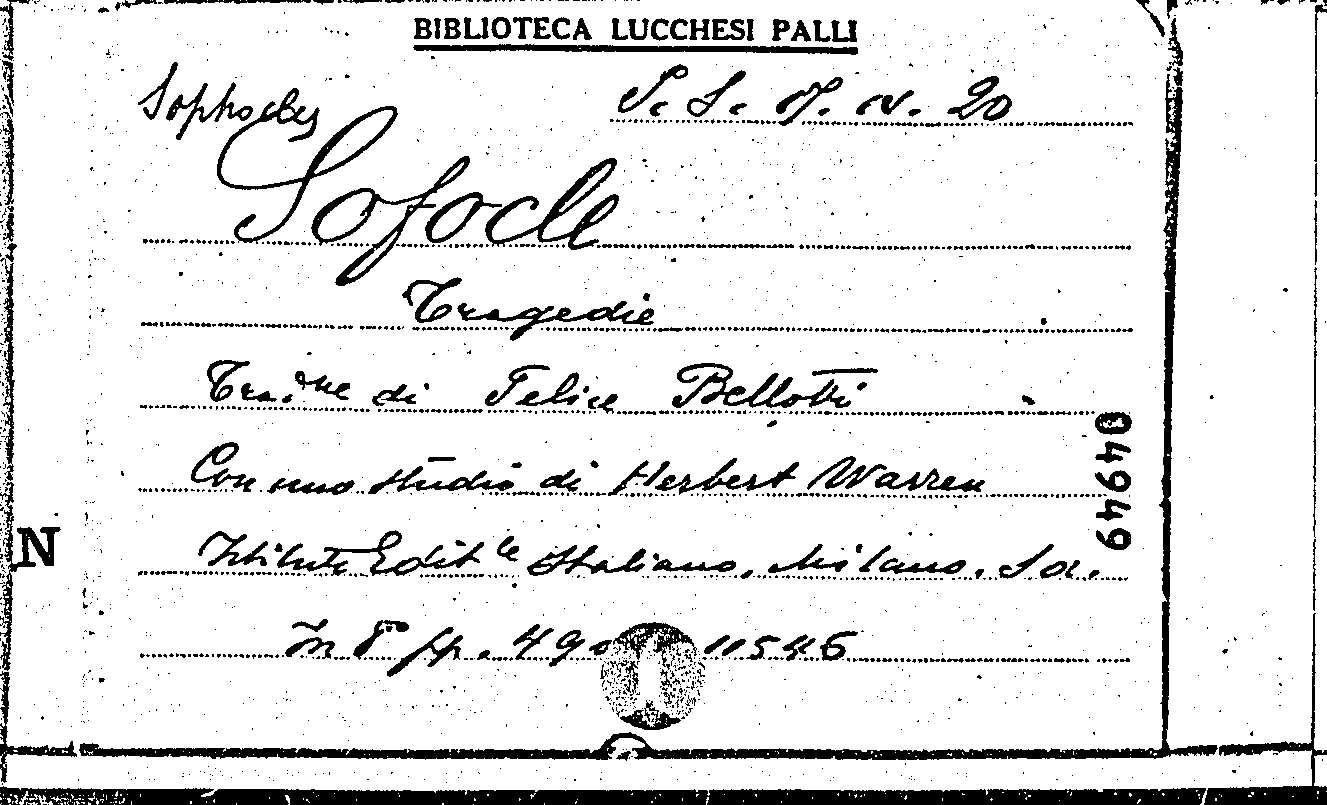 BIBLIOTECA LUCCHESI PALLI
Sophocles
S. 20
Sofocle
Tragedie
Tra.one di Felice Bellotti
Con uno studio di Herbert Warren
Istituto Edit.le Italiano, Milano. S. d.
In 8° pp. 490 11546
04949
N